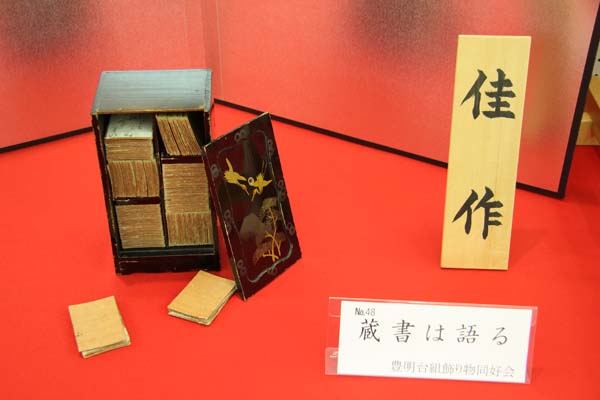 佳作
№48
蔵書は語る
豊明台組飾り物同好会